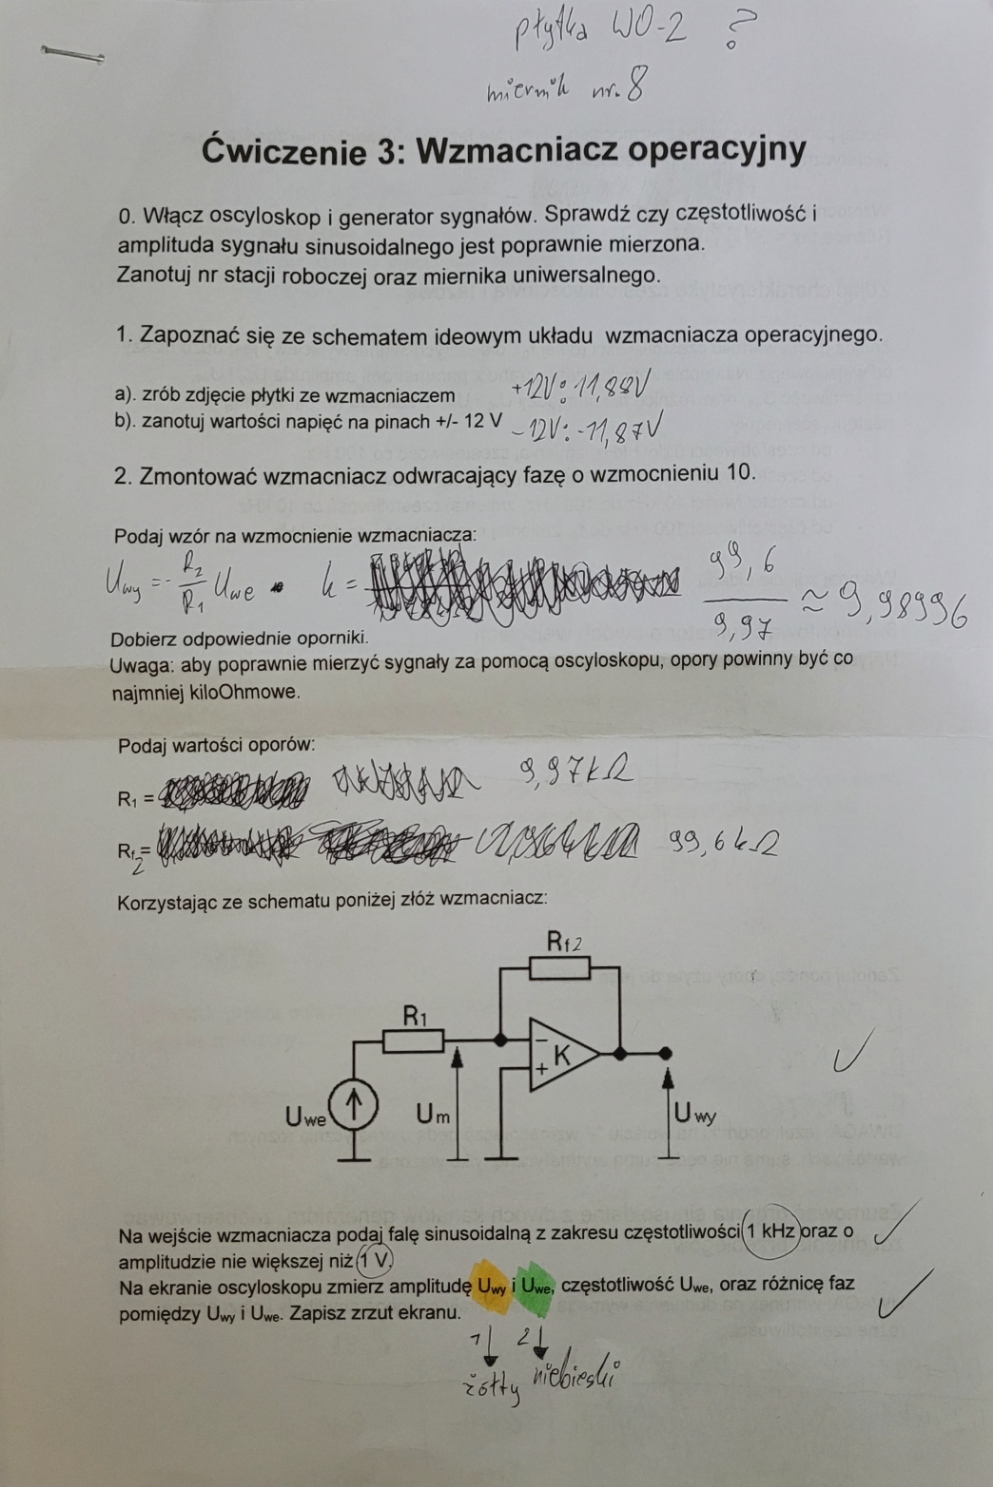 płytka WO-2 ?
miernik nr. 8
Ćwiczenie 3: Wzmacniacz operacyjny
0. Włącz oscyloskop i generator sygnałów. Sprawdź czy częstotliwość i
amplituda sygnału sinusoidalnego jest poprawnie mierzona.
Zanotuj nr stacji roboczej oraz miernika uniwersalnego.
1. Zapoznać się ze schematem ideowym układu wzmacniacza operacyjnego.
a). zrób zdjęcie płytki ze wzmacniaczem +12V: 11,88V
b). zanotuj wartości napięć na pinach +/- 12 V -12V: -11,87V
2. Zmontować wzmacniacz odwracający fazę o wzmocnieniu 10.
Podaj wzór na wzmocnienie wzmacniacza:
Uwy = - R2/R1 Uwe k = 99,6/9,97 ≈ 9,98996
Dobierz odpowiednie oporniki.
Uwaga: aby poprawnie mierzyć sygnały za pomocą oscyloskopu, opory powinny być co
najmniej kiloOhmowe.
Podaj wartości oporów:
R1 = 9,97kΩ
Rf2 = 99,6kΩ
Korzystając ze schematu poniżej złóż wzmacniacz:
Rf2
R1
- K
+
Uwe Um Uwy
Na wejście wzmacniacza podaj falę sinusoidalną z zakresu częstotliwości 1 kHz oraz o
amplitudzie nie większej niż 1 V.
Na ekranie oscyloskopu zmierz amplitudę Uwy i Uwe, częstotliwość Uwe, oraz różnicę faz
pomiędzy Uwy i Uwe. Zapisz zrzut ekranu.
1 2
żółty niebieski